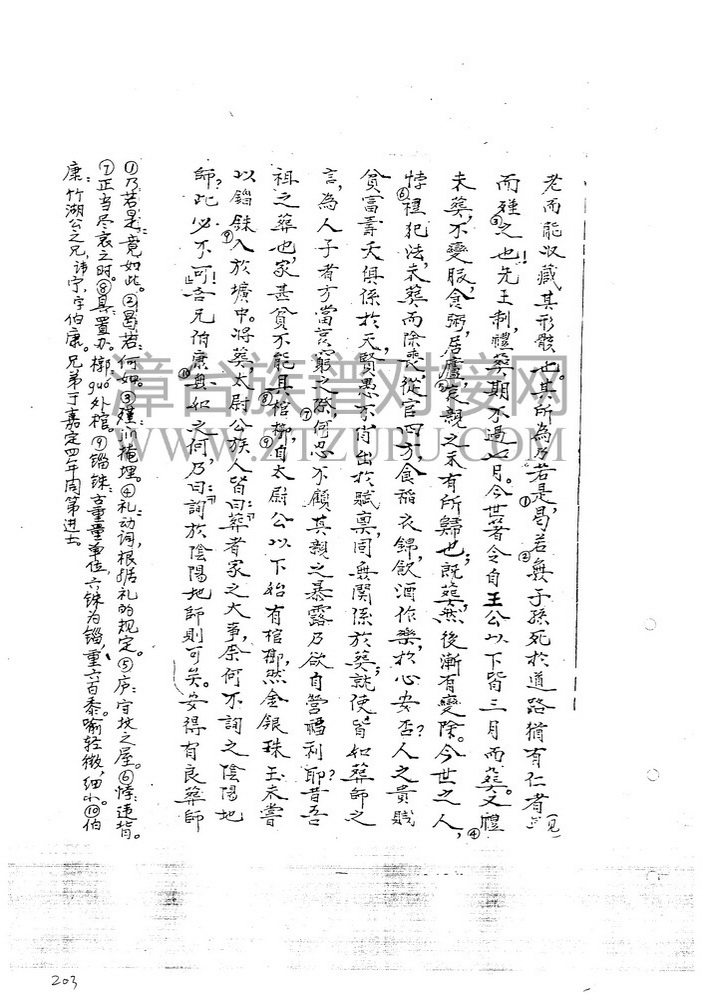 老而能收藏其形骸也。其所為乃若是，①曷若無子孫死於道路猶有仁者(見之)②
而殣之也！③先王制禮，葬期不過七月。今世著令自王公以下皆三月而葬。又禮④
未葬，不變服，食粥，居廬，⑤哀親之未有所歸也；既葬，然後漸有變除。今世之人，
悖⑥禮犯法，未葬而除喪，從官四方，食稻衣錦，飲酒作樂，於心安否？人之貴賤
貧富壽夭俱係於天，賢愚不肖出於賦稟，固無關係於葬；就使皆如葬師之
言，為人子者方當哀窮之際，⑦何忍不顧其親之暴露乃欲自營福利耶？昔吾
祖之葬也，家甚貧不能具棺槨，⑧自太尉公以下始有棺槨，然金銀珠玉未嘗
以錙銖⑨入於壙中。將葬，太尉公族人皆曰：“葬者家之大事，奈何不詢之陰陽地
師？此必不可！”吾兄伯康⑩無如之何，乃曰：“詢於陰陽地師則可矣。安得有良葬師
①乃若是：竟如此。②曷若：何如。③殣：jìn掩埋。④礼：动词，根据礼的规定。⑤庐：守坟之屋。⑥悖：违背。
⑦正当尽哀之时。⑧具：置办。槨guǒ外棺。⑨锱铢：古重量单位，六铢为锱，重六百黍。喻轻微，细小。⑩伯
康：竹湖公之兄，讳宁，字伯康。兄弟于嘉定四年同第进士。
203
漳台族谱对接网
WWW.ZTZUPU.COM